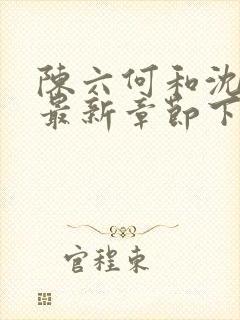 陳六何和沈
最新章節下
官程東